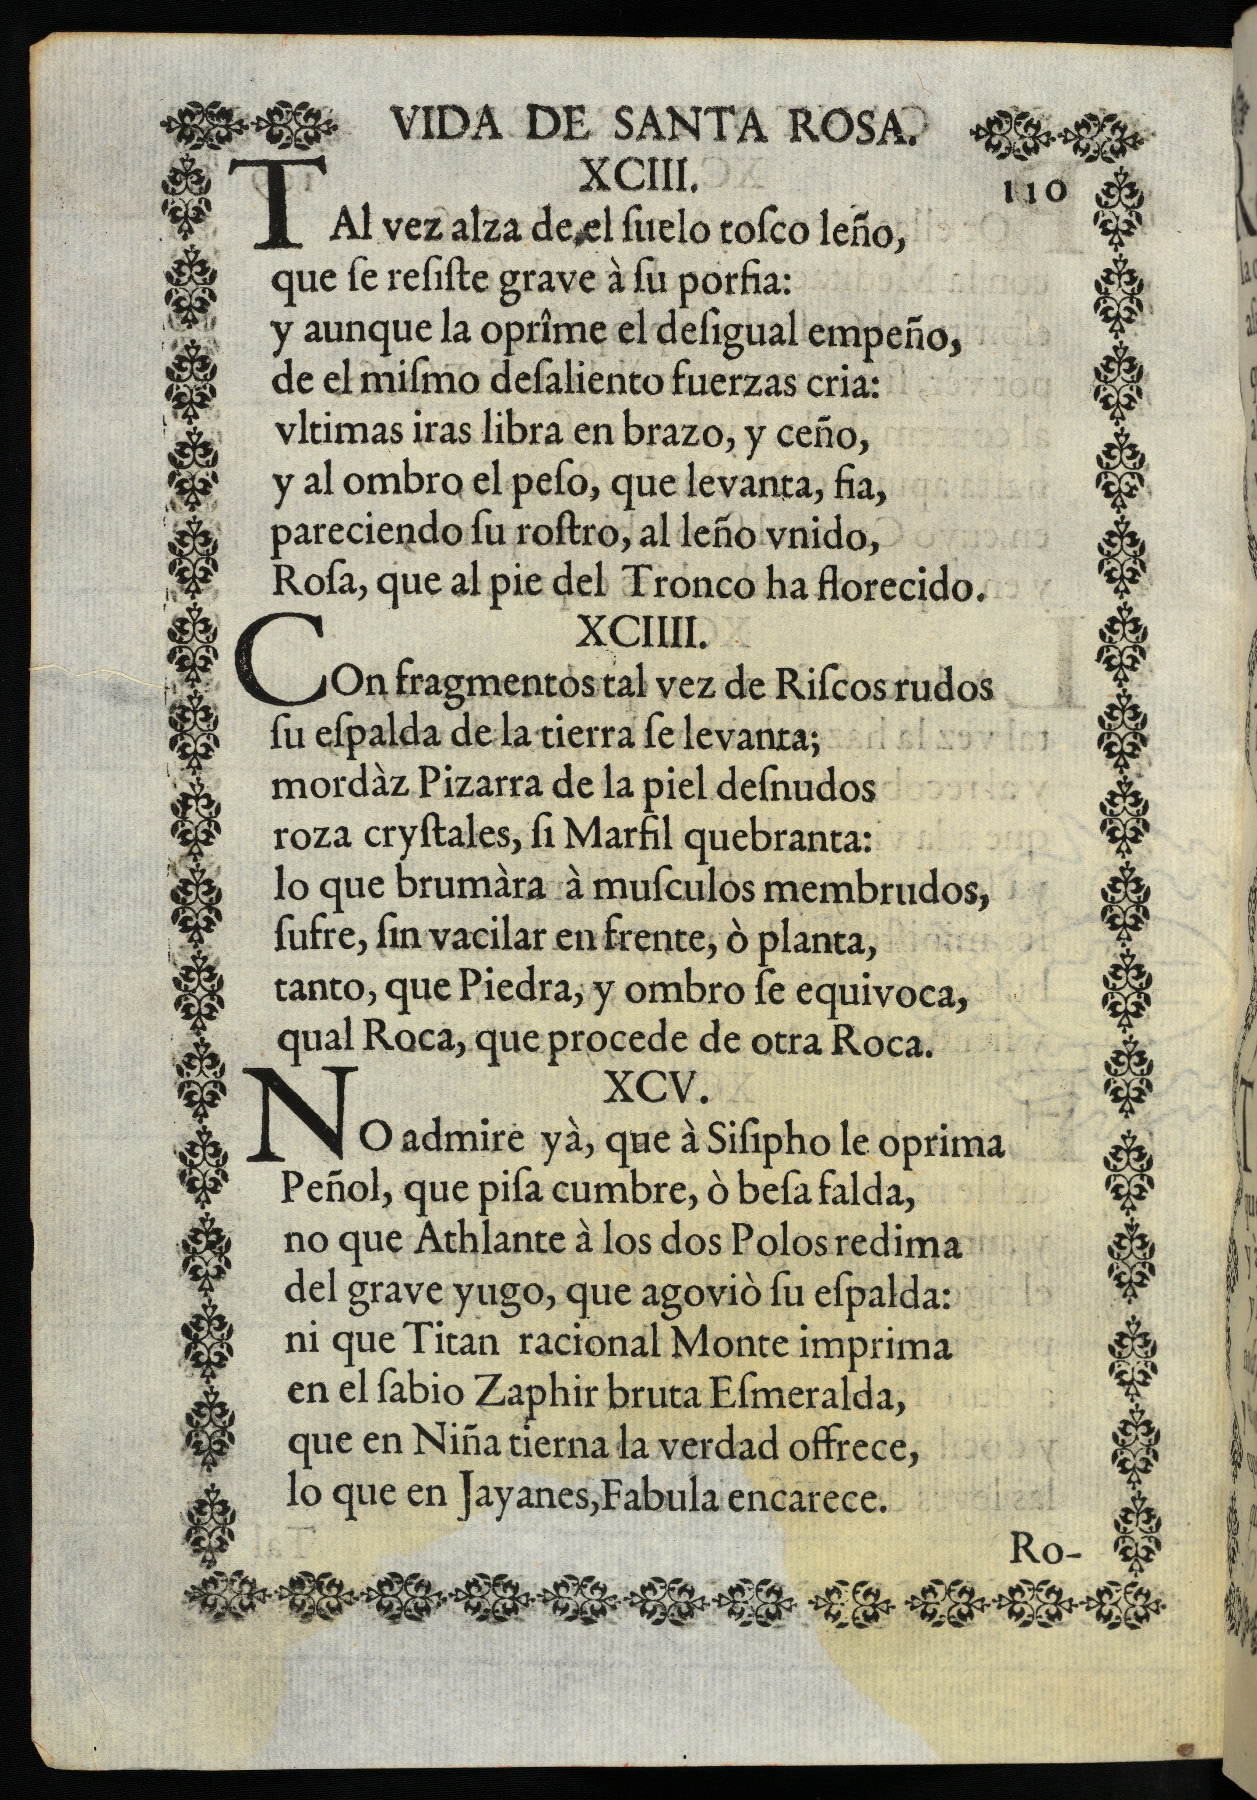 VIDA DE SANTA ROSA.
XCIII.
110
TAl vez alza de el ſuelo toſco leño,
que ſe reſiſte grave à ſu porfia:
y aunque la oprîme el deſigual empeño,
de el miſmo deſaliento fuerzas cria:
vltimas iras libra en brazo, y ceño,
y al ombro el peſo, que levanta, fia,
pareciendo ſu roſtro, al leño vnido,
Roſa, que al pie del Tronco ha florecido.
XCIIII.
COn fragmentos tal vez de Riſcos rudos
ſu eſpalda de la tierra ſe levanta;
mordàz Pizarra de la piel deſnudos
roza cryſtales, ſi Marfil quebranta:
lo que brumàra à muſculos membrudos,
ſufre, ſin vacilar en frente, ò planta,
tanto, que Piedra, y ombro ſe equivoca,
qual Roca, que procede de otra Roca.
XCV.
NO admire yà, que à Siſipho le oprima
Peñol, que piſa cumbre, ò beſa falda,
no que Athlante à los dos Polos redima
del grave yugo, que agoviò ſu eſpalda:
ni que Titan racional Monte imprima
en el ſabio Zaphir bruta Eſmeralda,
que en Niña tierna la verdad offrece,
lo que en Jayanes, Fabula encarece.
Ro-